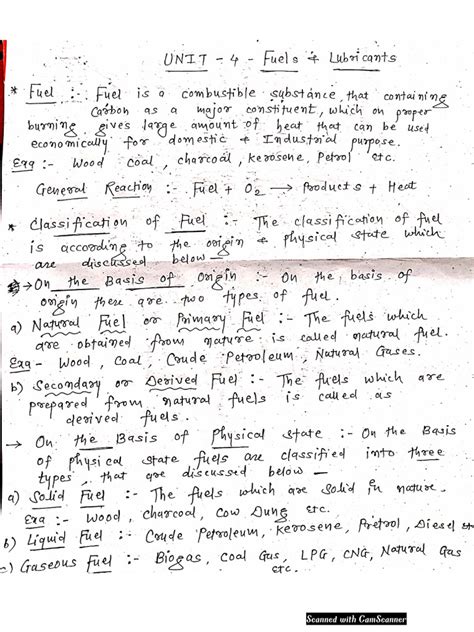 UNIT - 4 - Fuels & Lubricants
* Fuel :- Fuel is a combustible substance, that containing
Carbon as a major constituent, which on proper
burning gives large amount of heat that can be used
economically for domestic & Industrial purpose.
Exa :- Wood Coal, charcoal, kerosene, Petrol etc.
General Reaction :- Fuel + O2 → Products + Heat
* Classification of Fuel :- The classification of fuel
is according to the origin & physical state which
are discussed below -
→ On the Basis of Origin :- On the, basis of
origin there are two types of fuel.
a) Natural Fuel or Primary Fuel :- The fuels which
are obtained from nature is called natural fuel.
Exa - Wood, Coal, Crude Petroleum, Natural Gases.
b) Secondary or Derived Fuel :- The fuels which are
prepared from natural fuels is called as
derived fuels.
→ On the Basis of Physical state :- On the Basis
of physical state fuels are classified into three
types, that are discussed below —
a) Solid Fuel :- The fuels which are Solid in nature.
Exa :- Wood, charcoal, Cow Dung etc.
b) Liquid Fuel :- Crude Petroleum, kerosene, Pretrol, Diesel etc
c) Gaseous Fuel :- Biogas, Coal Gas, LPG, CNG, Natural Gas
etc.
Scanned with CamScanner